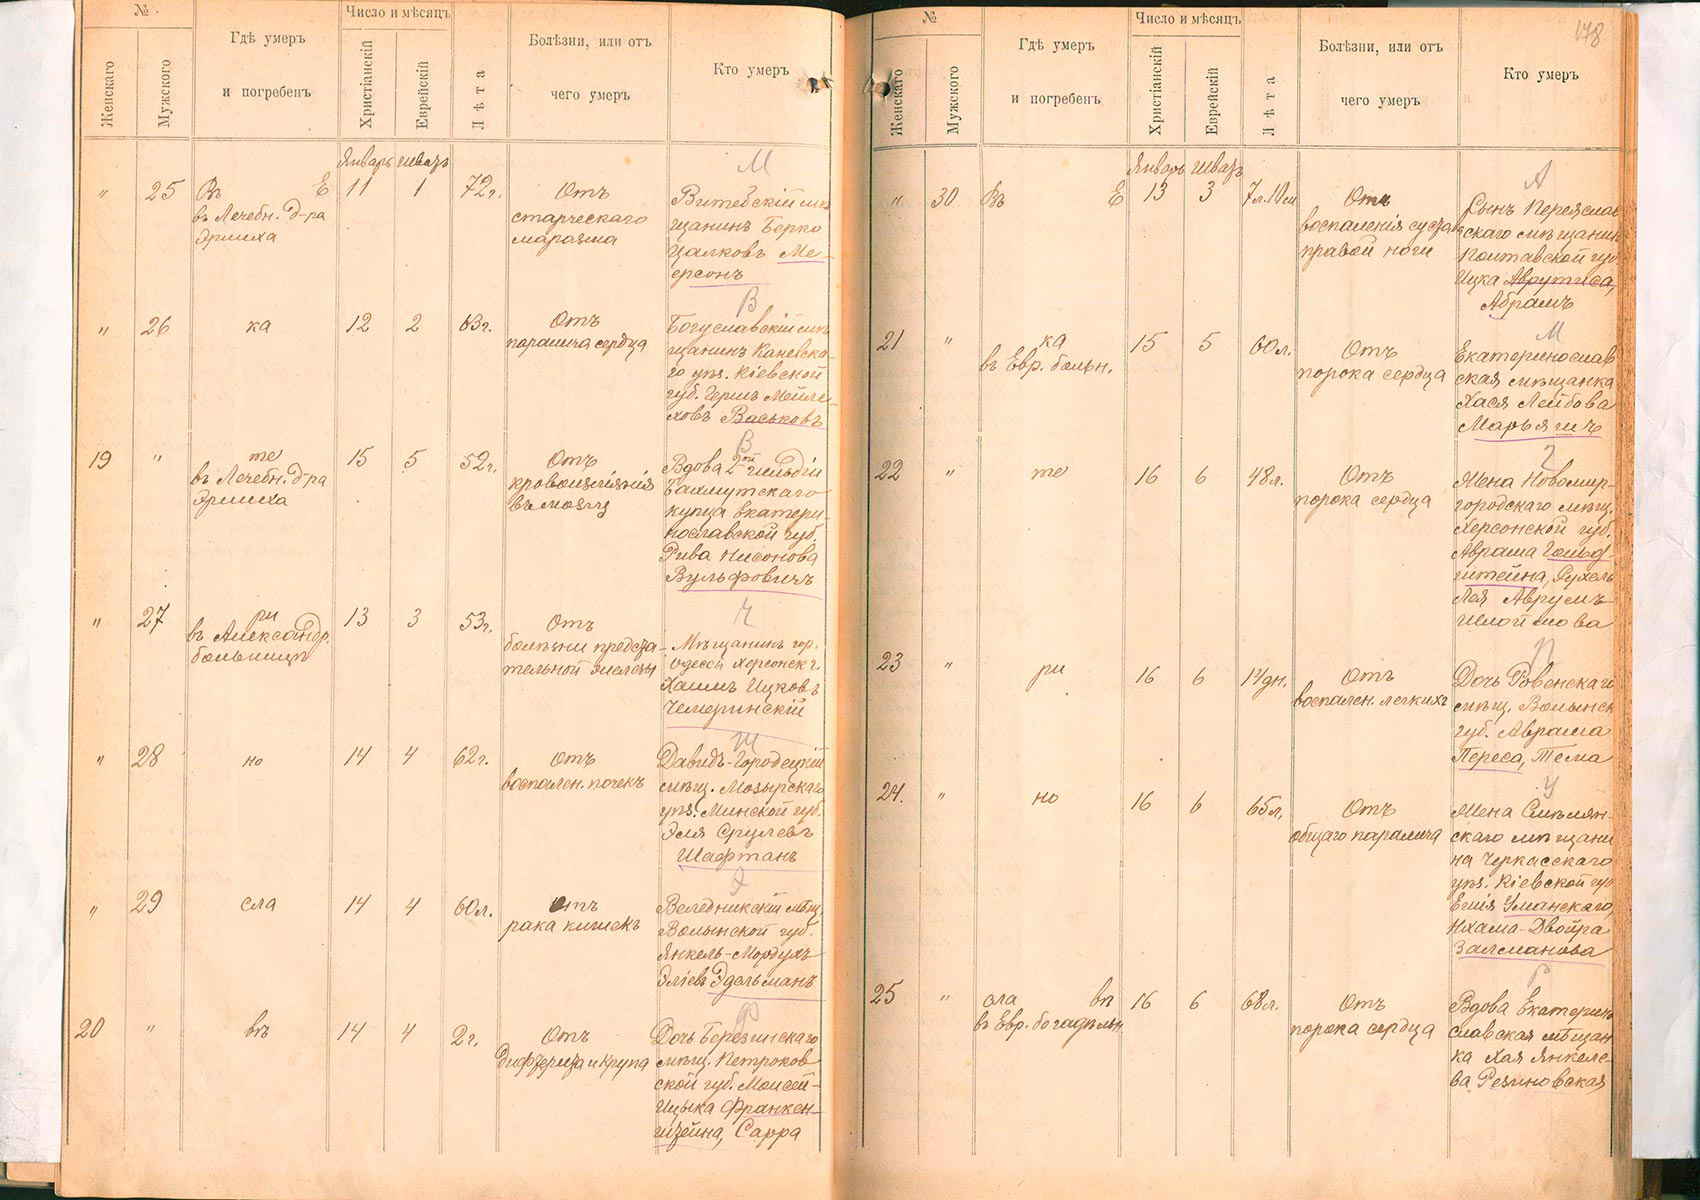 №
Число и мѣсяцъ
Женскаго
Мужского
Гдѣ умеръ
и погребенъ
Христіанскій
Еврейскій
Лѣта
Болѣзни, или отъ
чего умеръ
Кто умеръ
Январь Шватъ
М
" 25 Въ Е 11 1 72г. Отъ
въ Лечебн. Д-ра
старческаго
маразма
Витебскій мѣ
щанинъ Берко
Цалковъ Ме-
ерсонъ
В
" 26 ка 12 2 63г. Отъ
паралича сердца
Богуславскій мѣ
щанинъ Каневска-
го уѣз. Кіевской
губ. Гершъ Мейле-
ховъ Васьковъ
В
19 " те 15 5 52г. Отъ
въ Лечебн. Д-ра
кровоизліянія
въ мозгъ
Вдова 2ой гильдіи
Бахмутскаго
купца Екатери-
нославской губ.
Рива Нисонова
Вульфовичъ
Ч
" 27 ри 13 3 53г. Отъ
въ Александр.
больницѣ
болѣзни предста-
тельной железы
Мѣщанинъ гор.
Одессы Херсонск г
Хаимъ Ицковъ
Чемеринскій
Ш
" 28 но 14 4 62г. Отъ
воспален. почекъ
Давидъ-Городецкій
мѣщ. Мозырскаго
уѣз. Минской губ.
Эля Срулевъ
Шафтанъ
Э
" 29 сла 14 4 60л. Отъ
рака кишекъ
Веледникскій мѣщ.
Волынской губ.
Янкель-Мордухъ
Эліевъ Эдельманъ
Ф
20 " въ 14 4 2г. Отъ
дифтерита и крупа
Дочь Березинскаго
мѣщ. Петроков
ской губ. Моисей-
Ицыка Франкен-
штейна, Сарра
178
№
Число и мѣсяцъ
Женскаго
Мужского
Гдѣ умеръ
и погребенъ
Христіанскій
Еврейскій
Лѣта
Болѣзни, или отъ
чего умеръ
Кто умеръ
Январь Шватъ
А
" 30 Въ Е 13 3 7л. Отъ
воспаленія сустава
правой ноги
Сынъ Переяслав
скаго мѣщанин
Полтавской губ
Ицка Аврутиса,
Абрамъ
М
21 " ка 15 5 60л. Отъ
въ Евр. больн.
порока сердца
Екатеринослав
ская мѣщанка
Хася Лейбова
Марьягинъ
22 " те 16 6 48л. Отъ
порока сердца
Жена Новомир-
городскаго мѣщ.
Херсонской губ.
Аврама Гольд-
штейна, Рухель
Лея Аврумъ
Шлоймова
П
23 " ри 16 6 14дн. Отъ
воспален. легкихъ
Дочь Ровенскаго
мѣщ. Волынск
губ. Аврама
Переса, Тема
У
24. " но 16 6 65л. Отъ
общаго паралича
Жена Смѣлян-
скаго мѣщани
на Черкасскаго
уѣз. Кіевской губ
Уманскаго,
Нхама-Двойра
Залманова
Р
25 " сла въ 16 6 68л. Отъ
въ Евр. богадѣльн
порока сердца
Вдова Екатерино
славская мѣщан
ка Хая Янкеле-
ва Резиновская